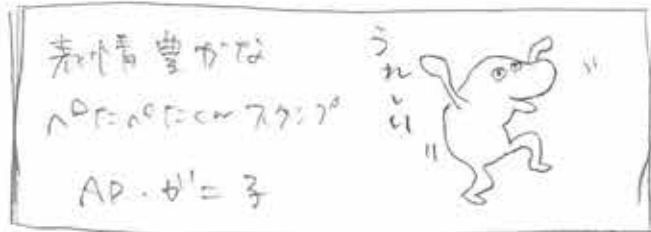 表情豊かな
ぺたぺたくんスタンプ
AD・がに子
うれしい